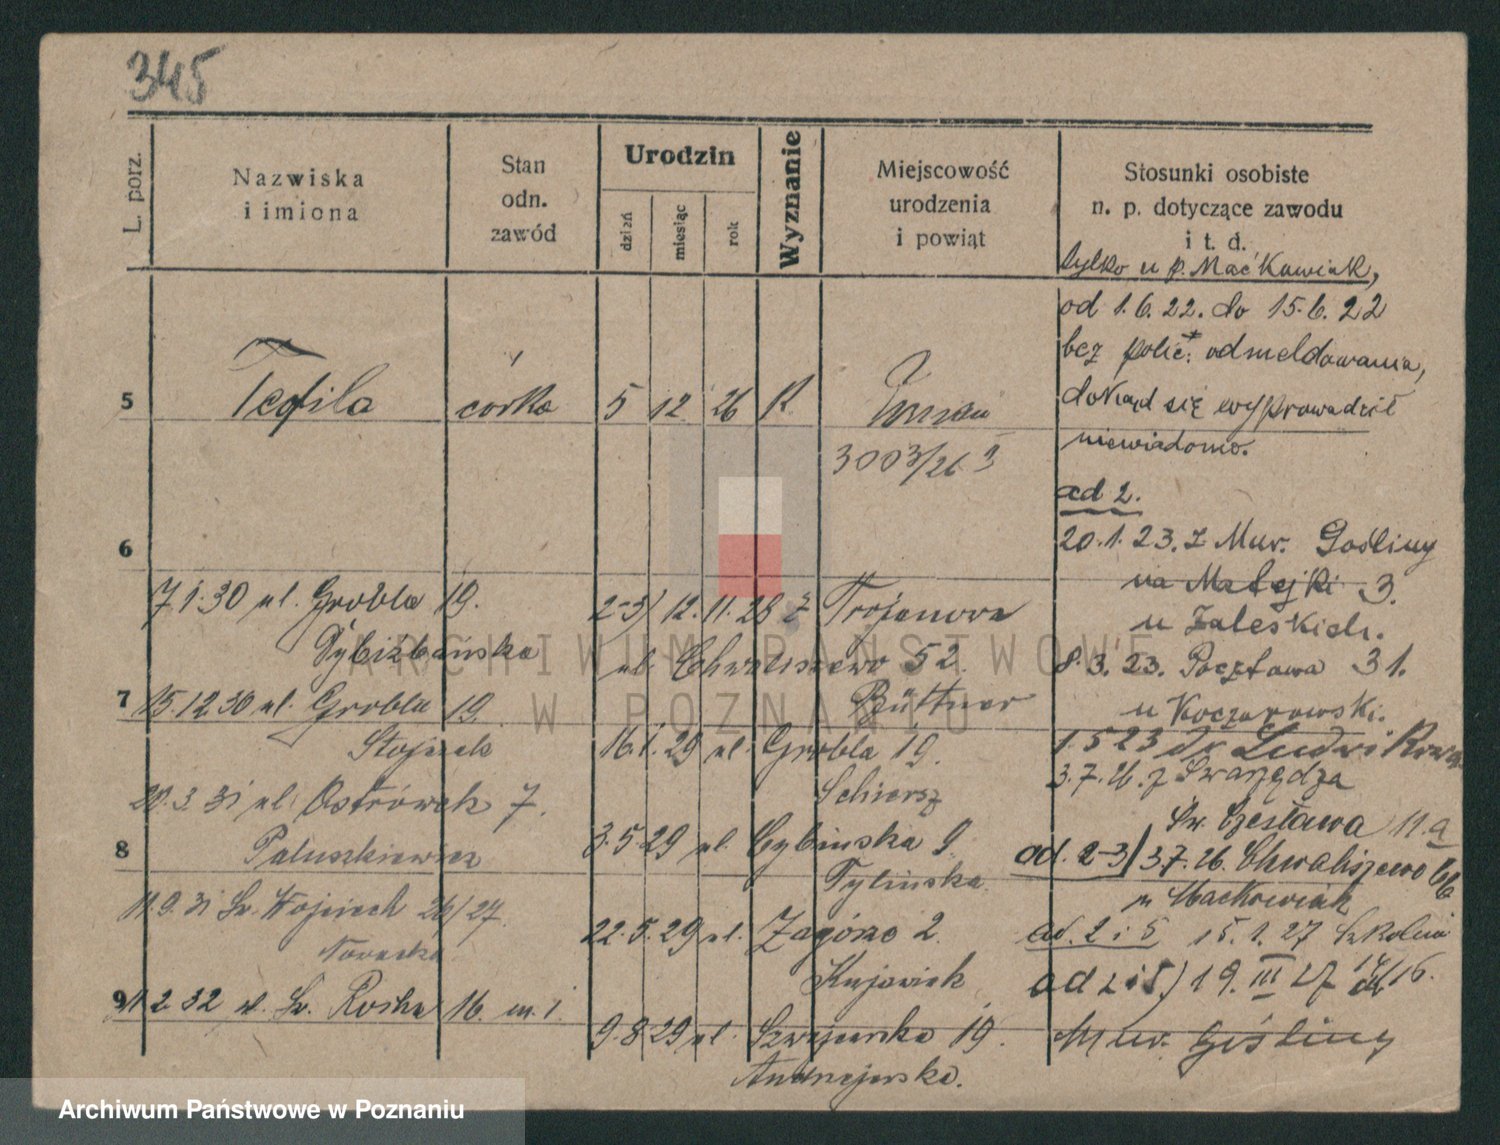 345
L. porz.
Nazwiska
i imiona
Stan
odn.
zawód
Urodzin
dzień
miesiąc
rok
Wyznanie
Miejscowość
urodzenia
i powiąt
Stosunki osobiste
n. p. dotyczące zawodu
i t. d.
tylko u p. Maćkowiak,
od 1.6.22. do 15.6.22
bez polic. odmeldowania,
dokąd się wyprowadził
niewiadomo.
5 Teofila córka 5 12 26 K.
3003/26
ad 2.
20.1.23. z Mur. Gośliny
na Matejki 3.
u Zaleskich.
8.3.23. Pocztowa 31.
u Koczorowski.
1.5.23
3.7.26. z Swarzędza
Św. Czesława 11.a
ad. 2-3) 3.7.26. Chwaliszewo 66
u Maćkowiak
ad. 2 i 5 15.1.27 Szkolna
ad 2 i 5) 19.III 27
Mur. Gośliny
6
7.1.30 ul. Grobla 19.
7
15.12.30 ul. Grobla 19.
20.3.31 ul. Ostrówek 7.
8
Paluszkiewicz
11.9.31 Św. Wojciech 26/27.
Nowacka
9
11.2.32 ul. Św. Rocha 16. m. 1.
2-3) 12.11.28 z
ul. Chwaliszewo 52.
Büttner
16.1.29 ul. Grobla 19.
3.5.29 ul. Cybińska 9.
Tylińska
22.5.29 ul. Zagórze 2.
Kujawiak
9.8.29 ul. Szwajcarska 19.
Andrzejewska.
ARCHIWUM PAŃSTWOWE
W POZNANIU
Archiwum Państwowe w Poznaniu